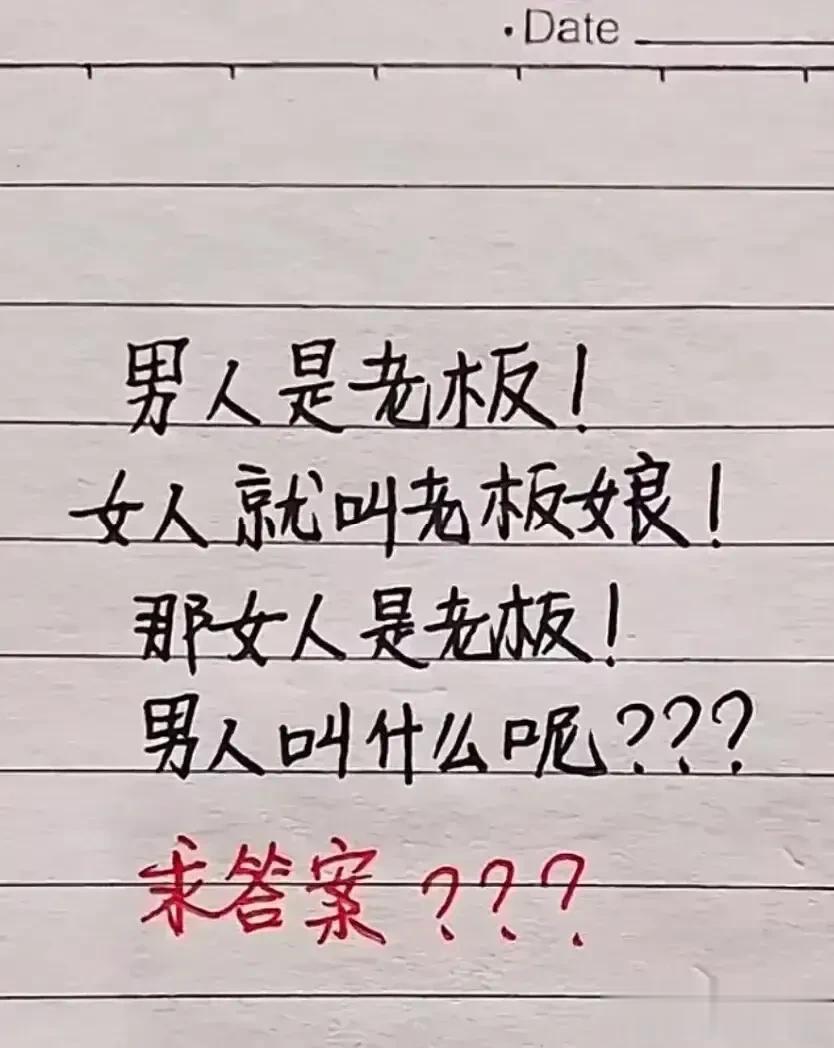 ·Date
男人是老板!
女人就叫老板娘!
那女人是老板!
男人叫什么呢???
求答案???